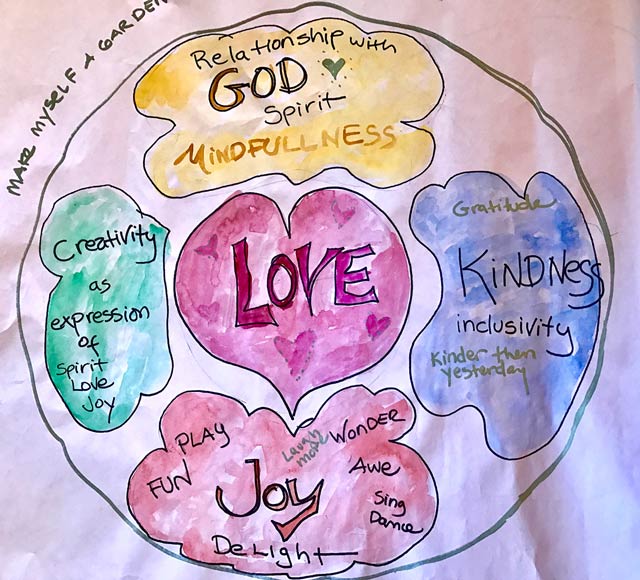 MAKE MYSELF A GARDEN
Relationship with
GOD
Spirit
MiNDFULLNESS
Creativity
as
expression
of
Spirit
Love
Joy
LOVE
Gratitude
KiNDNess
inclusivity
Kinder then
yesterday
PLAY
FUN
Laugh
more
WONDER
Awe
Sing
Dance
Joy
DeLight